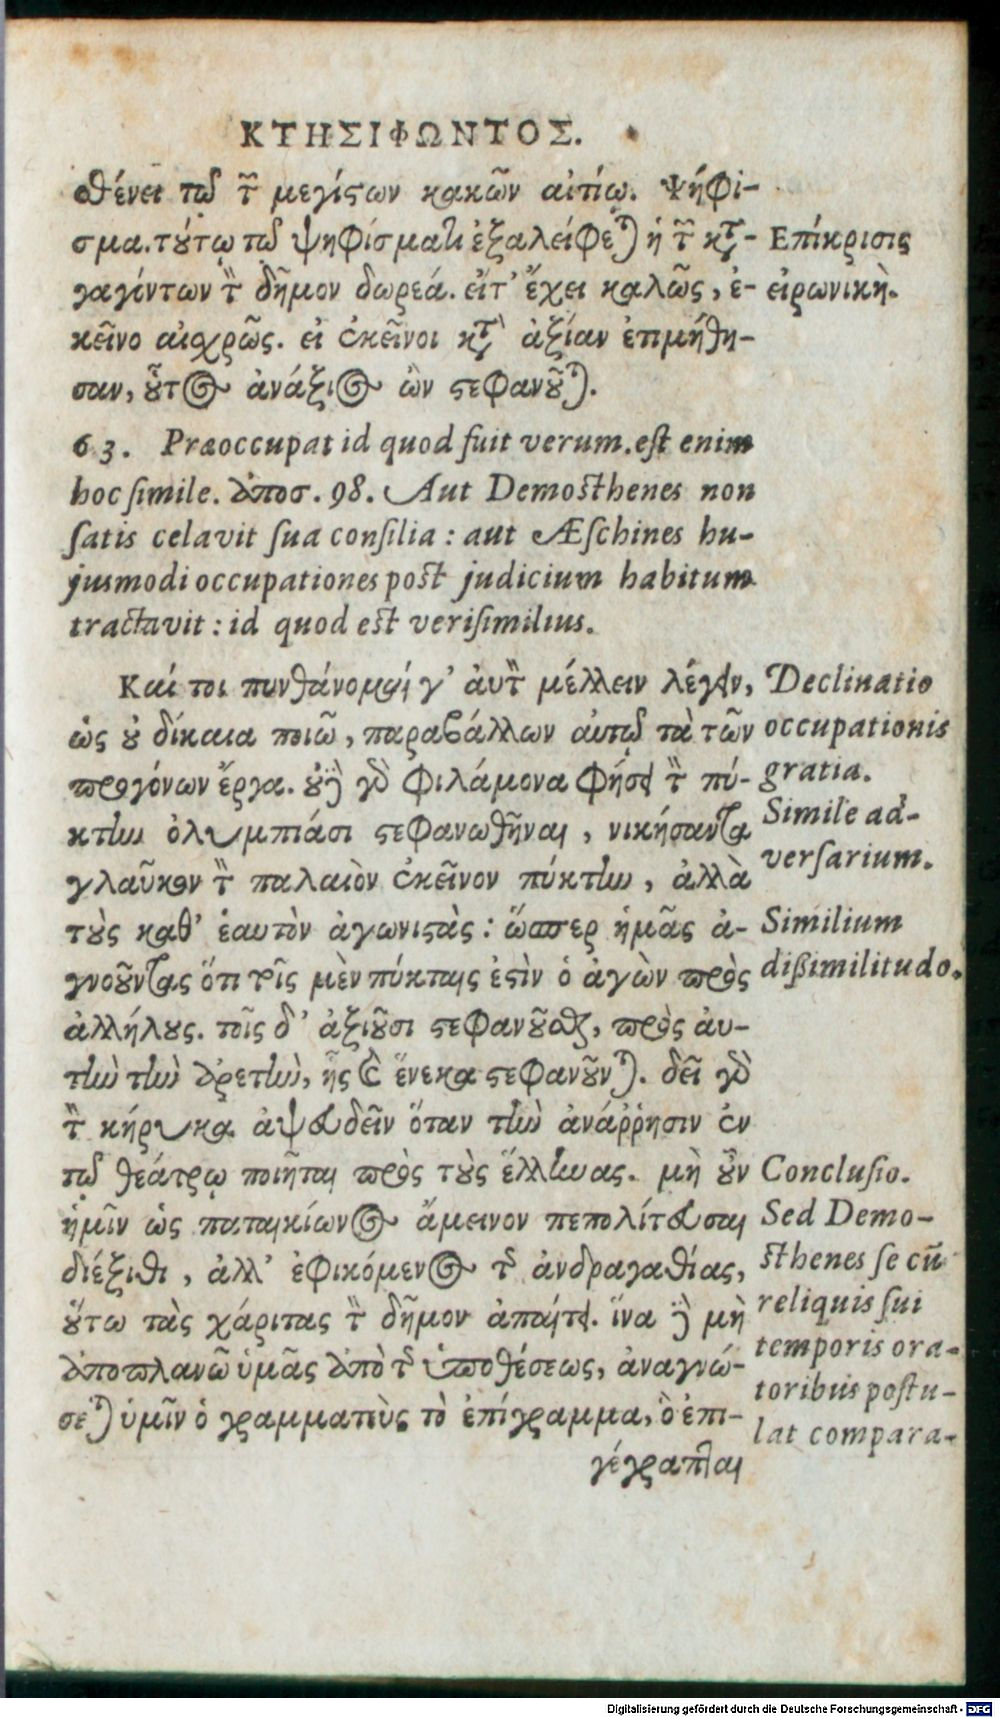 ΚΤΗΣΙΦΩΝΤΟΣ.
σθένει τῷ τῶν μεγίστων κακῶν αἰτίῳ. Ψήφι-
σμα. τούτῳ τῷ ψηφίσματι ἐξαλείφεται ἡ τῶν κατα-
γαγόντων τὸν δῆμον δωρεά. εἰ τ' ἔχει καλῶς, ἐ-
κεῖνο αἰσχρῶς. εἰ ἐκεῖνοι κατ' ἀξίαν ἐτιμήθη-
σαν, οὗτος ἀνάξιος ὢν στεφανοῦται.
Επίκρισις
εἰρωνικὴ.
63. Præoccupat id quod fuit verum. est enim
hoc simile. ἀποσ. 98. Aut Demosthenes non
satis celavit sua consilia: aut Æschines hu-
jusmodi occupationes post judicium habitum
tractavit: id quod est verisimilius.
Καί τοι πυνθάνομαί γ' αὐτὸν μέλλειν λέγειν,
ὡς οὐ δίκαια ποιῶ, παραβάλλων αὐτῷ τὰ τῶν
προγόνων ἔργα. οὐδὲ γὰρ φιλάμονα φήσει τὸν πύ-
κτην ὀλυμπιάσι στεφανωθῆναι, νικήσαντα
γλαῦκον τὸν παλαιὸν ἐκεῖνον πύκτην, ἀλλὰ
τοὺς καθ' ἑαυτὸν ἀγωνιστὰς: ὥσπερ ἡμᾶς ἀ-
γνοοῦντας ὅτι τοῖς μὲν πύκταις ἐστὶν ὁ ἀγὼν πρὸς
ἀλλήλους. τοῖς δ' ἀξιοῦσι στεφανοῦσθαι, πρὸς αὐ-
τὴν τὴν ἀρετὴν, ἧς καὶ ἕνεκα στεφανοῦνται. δεῖ γὰρ
τὸν κήρυκα ἀψευδεῖν ὅταν τὴν ἀνάῤῥησιν ἐν
τῷ θεάτρῳ ποιῆται πρὸς τοὺς ἕλληνας. μὴ οὖν
ἡμῖν ὡς παταικίωνος ἄμεινον πεπολίτευσαι
διέξιθι, ἀλλ' ἐφικόμενος τῆς ἀνδραγαθίας,
οὕτω τὰς χάριτας τὸν δῆμον ἀπαίτει. ἵνα δὲ μὴ
ἀποπλανῶ ὑμᾶς ἀπὸ τῆς ὑποθέσεως, ἀναγνώ-
σεται ὑμῖν ὁ γραμματεὺς τὸ ἐπίγραμμα, ὃ ἐπι-
γέγραπται
Declinatio
occupationis
gratia.
Simile ad-
versarium.
Similium
dißimilitudo.
Conclusio.
Sed Demo-
sthenes se cũ
reliquis sui
temporis ora-
toribus postu-
lat compara-
Digitalisierung gefördert durch die Deutsche Forschungsgemeinschaft - DFG